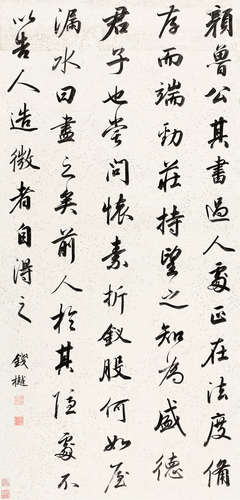 顏魯公其書過人處正在法度備
存而端勁莊持望之知為盛德
君子也嘗問懷素折釵股何如屋
漏水曰盡之矣前人於其隱處不
以告人造微者自得之
錢樾